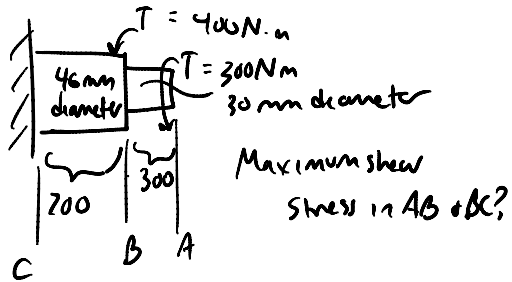 T = 400N.m
T = 300Nm
46mm
diameter
30mm diameter
200
300
Maximum shear
stress in AB & BC?
C
B
A